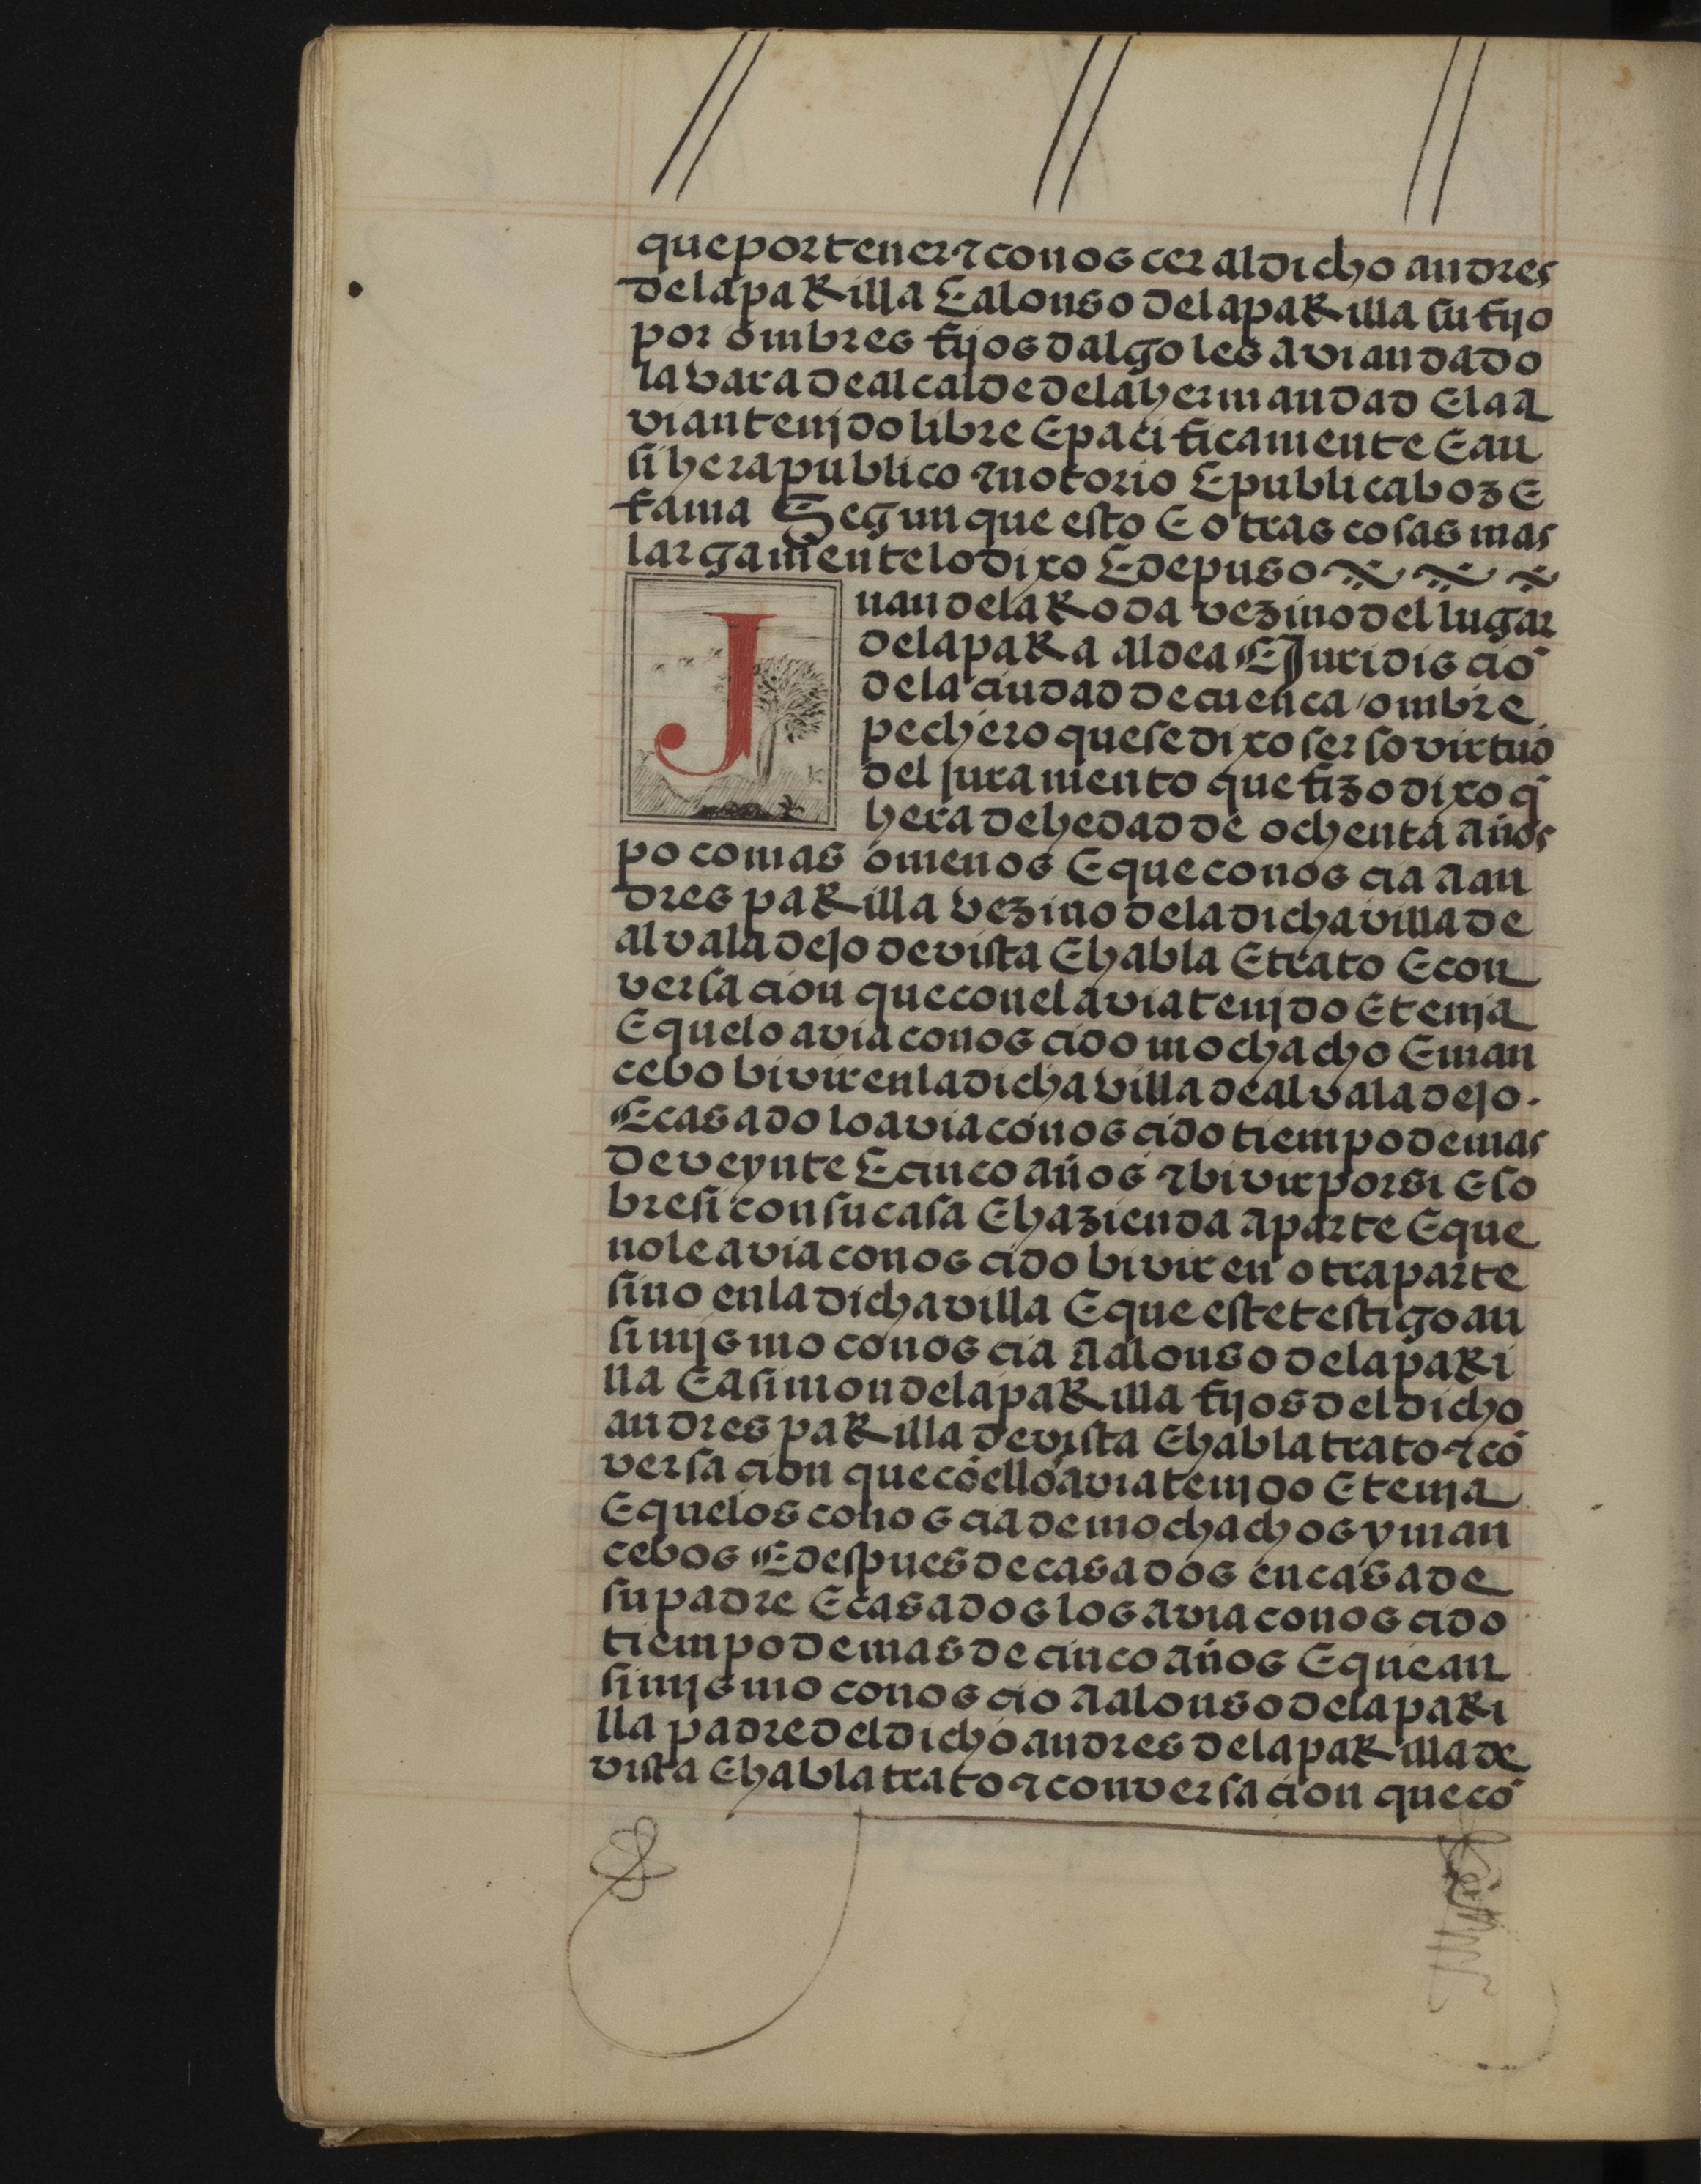 que por tener ⁊ conosçer al dicho andres
de la paRilla E alonso de la paRilla su fijo
por ombres fijos dalgo les avian dado
la vara de alcalde de la hermandad E la a
vian tenjdo libre E paçificamente E an
si hera publico ⁊ notorio E publica boz E
fama Segun que esto E otras cosas mas
largamente lo dixo E depuso
Juan de la Roda vezino del lugar
de la paRa aldea E Juridisçio͂
de la çiudad de cuenca ombre
pechero que se dixo ser so virtud
del juramento que fizo dixo q̃
hera de hedad de ochenta años
poco mas o menos E que conosçia a an
dres paRilla vezino de la dicha villa de
alvaladejo de vista E habla E trato E con
versaçion que con el avia tenjdo E tenja
E que lo avia conosçido mochacho E man
cebo bivir en la dicha villa de alvaladejo.
E casado lo avia conosçido tiempo de mas
de veynte E çinco años ⁊ bivir por si E so
bre si con su casa E hazienda aparte E que
no le avia conosçido bivir en otra parte
sino en la dicha villa E que este testigo an
si mjsmo conosçia a alonso de la paRi
lla E a simon de la paRilla fijos del dicho
andres paRilla de vista E habla trato ⁊ co͂
versaçion que co͂ ellos avia tenjdo E tenja
E que los conosçia de mochachos y man
cebos E despues de casados en casa de
su padre E casados los avia conosçido
tiempo de mas de çinco años E que an
si mjsmo conosçio a alonso de la paRi
lla padre del dicho andres de la paRilla de
vista E habla trato ⁊ conversaçion que co͂